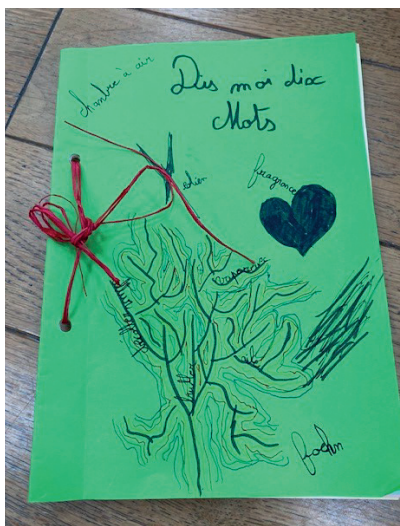 chambre à air
Dis moi dix
Mots
éolien
fragrance
vaporeux
buller
foehn